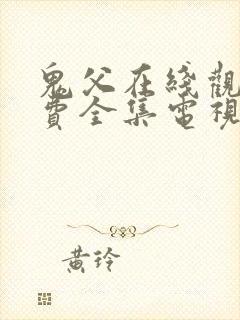 鬼父在綫觀
費全集電視
黃玲